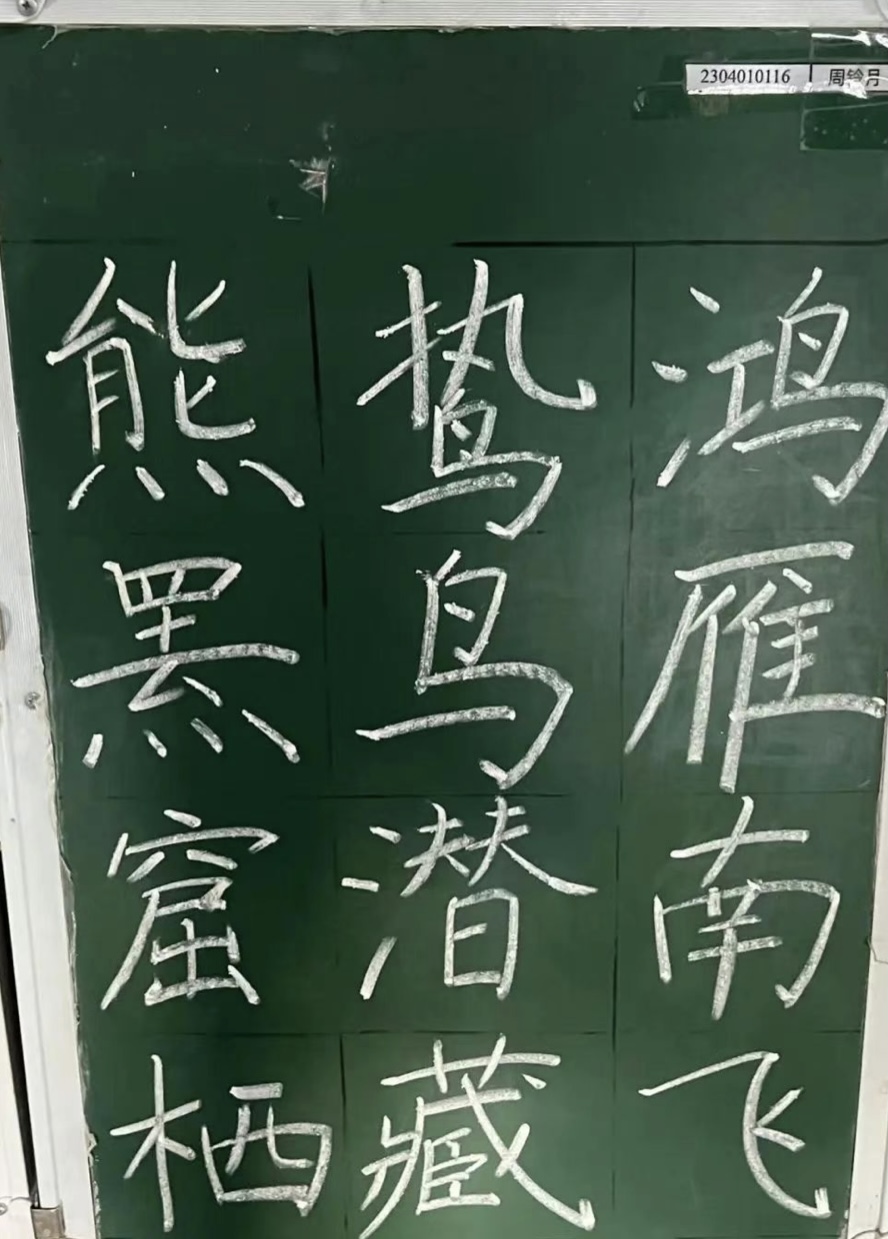 2304010116 周铃月
鸿雁南飞
鸷鸟潜藏
熊罴窟栖